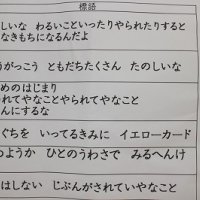 標語
しいな わるいこといったりやられたりすると
なきもちになるんだよ
うがっこう ともだちたくさん たのしいな
めのはじまり
されてやなことやられてやなこと
んにするな
ぐちを いってるきみに イエローカード
のようか ひとのうわさで みるへんけ
はしない じぶんがされていやなこと